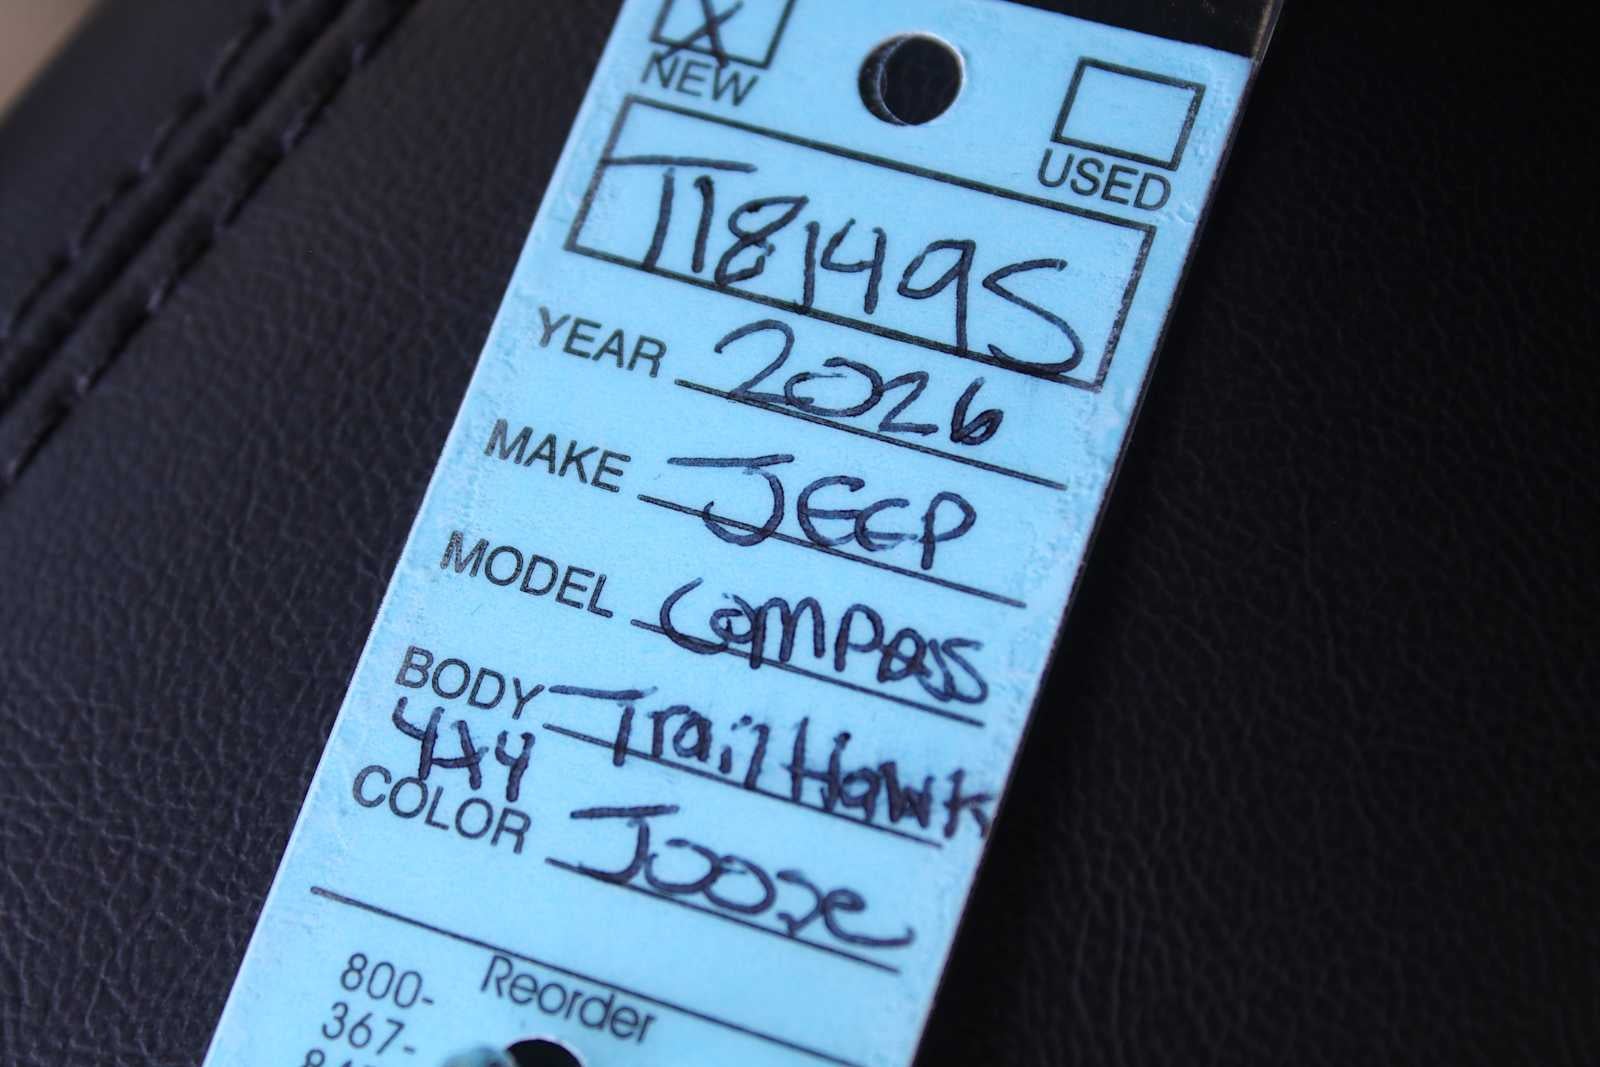 X
NEW
USED
T181495
YEAR 2026
MAKE JEEP
MODEL Compass
BODY Trail Hawk
4x4
COLOR Joose
Reorder
800-
367-